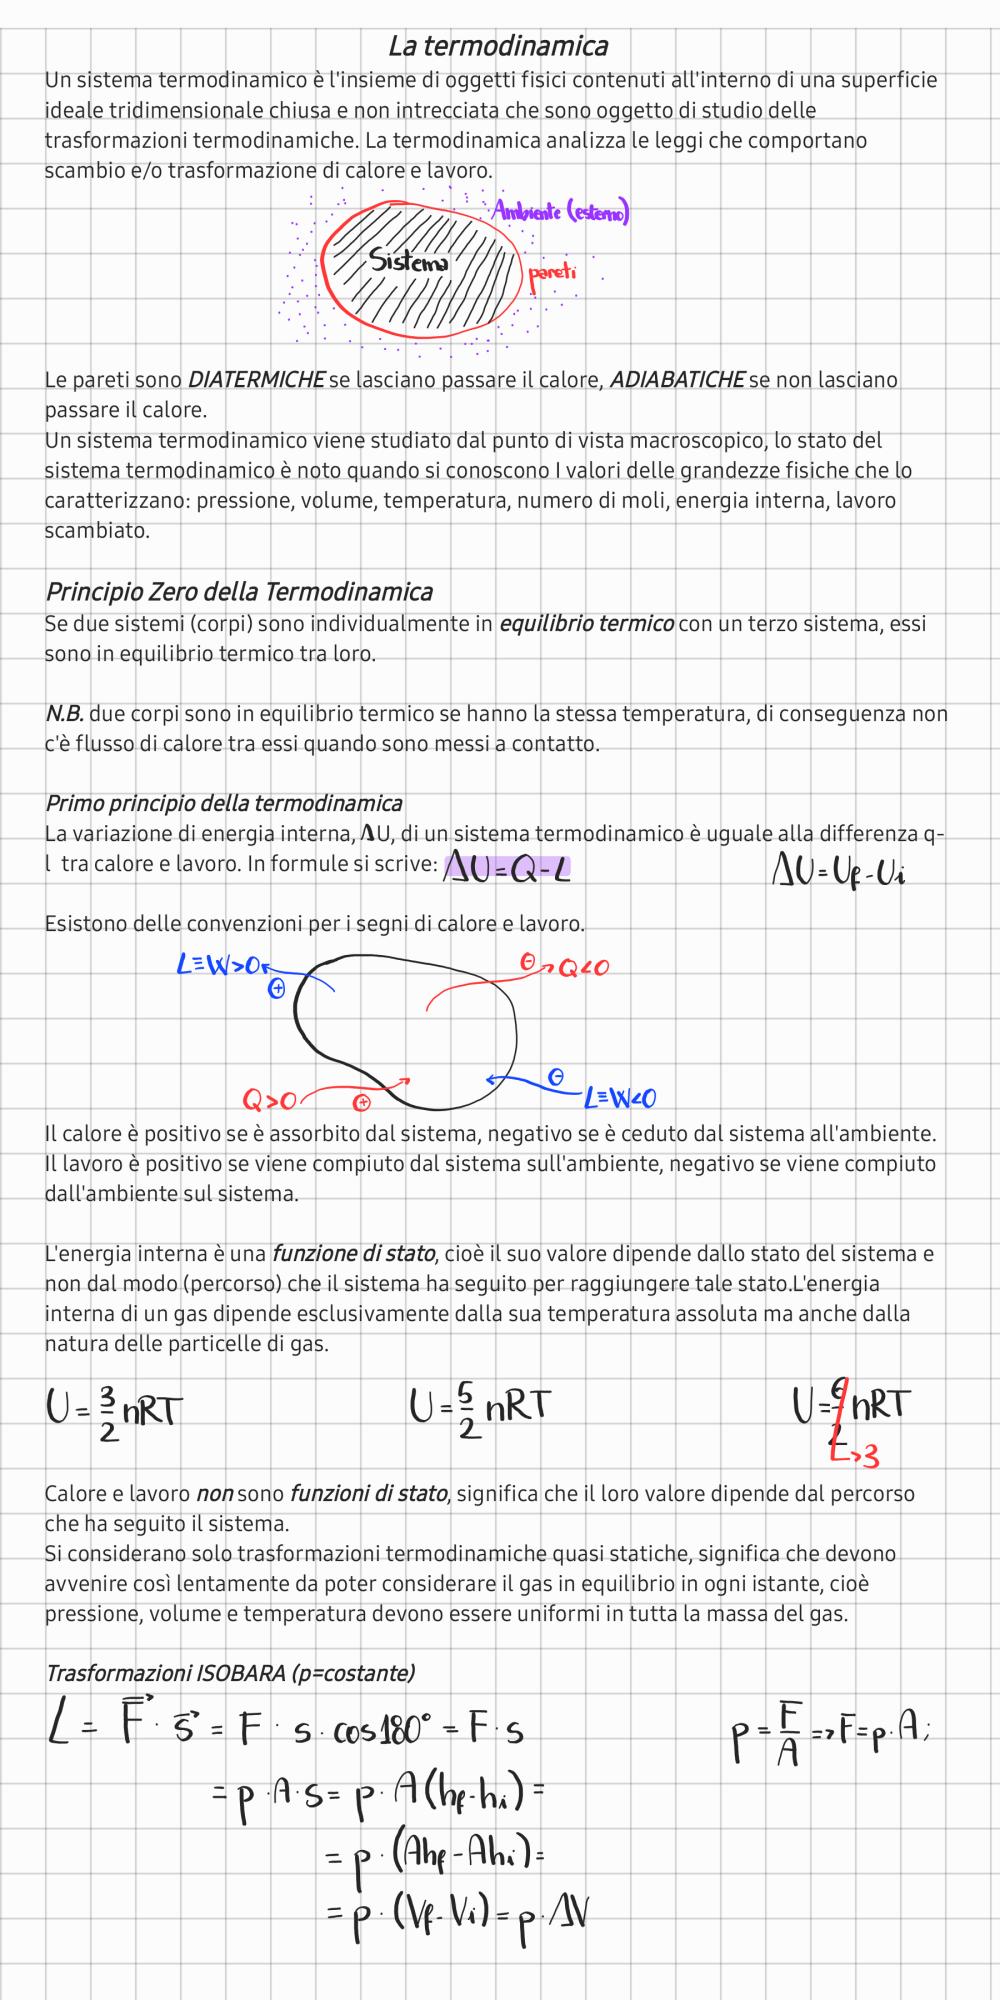 La termodinamica
Un sistema termodinamico è l'insieme di oggetti fisici contenuti all'interno di una superficie
ideale tridimensionale chiusa e non intrecciata che sono oggetto di studio delle
trasformazioni termodinamiche. La termodinamica analizza le leggi che comportano
scambio e/o trasformazione di calore e lavoro.
Ambiente (esterno)
Sistema
pareti
Le pareti sono DIATERMICHE se lasciano passare il calore, ADIABATICHE se non lasciano
passare il calore.
Un sistema termodinamico viene studiato dal punto di vista macroscopico, lo stato del
sistema termodinamico è noto quando si conoscono I valori delle grandezze fisiche che lo
caratterizzano: pressione, volume, temperatura, numero di moli, energia interna, lavoro
scambiato.
Principio Zero della Termodinamica
Se due sistemi (corpi) sono individualmente in equilibrio termico con un terzo sistema, essi
sono in equilibrio termico tra loro.
N.B. due corpi sono in equilibrio termico se hanno la stessa temperatura, di conseguenza non
c'è flusso di calore tra essi quando sono messi a contatto.
Primo principio della termodinamica
La variazione di energia interna, ΔU, di un sistema termodinamico è uguale alla differenza q-
l tra calore e lavoro. In formule si scrive: ΔU=Q-L ΔU=Uf-Ui
Esistono delle convenzioni per i segni di calore e lavoro.
L≡W>0 ⊕ ⊖ Q<0
Q>0 ⊕ ⊖ L≡W<0
Il calore è positivo se è assorbito dal sistema, negativo se è ceduto dal sistema all'ambiente.
Il lavoro è positivo se viene compiuto dal sistema sull'ambiente, negativo se viene compiuto
dall'ambiente sul sistema.
L'energia interna è una funzione di stato, cioè il suo valore dipende dallo stato del sistema e
non dal modo (percorso) che il sistema ha seguito per raggiungere tale stato.L'energia
interna di un gas dipende esclusivamente dalla sua temperatura assoluta ma anche dalla
natura delle particelle di gas.
U = 3/2 nRT U = 5/2 nRT U = 6/2 nRT
→3
Calore e lavoro non sono funzioni di stato, significa che il loro valore dipende dal percorso
che ha seguito il sistema.
Si considerano solo trasformazioni termodinamiche quasi statiche, significa che devono
avvenire così lentamente da poter considerare il gas in equilibrio in ogni istante, cioè
pressione, volume e temperatura devono essere uniformi in tutta la massa del gas.
Trasformazioni ISOBARA (p=costante)
L = F⃗ · s⃗ = F · s · cos180° = F · s p = F/A => F=p·A;
= p · A · s = p · A (hf-hi) =
= p · (Ahf - Ahi) =
= p · (Vf - Vi) = p · ΔV